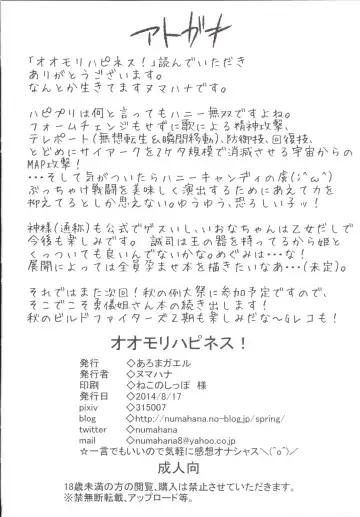 アトガキ
「オオモリハピネス！」読んでいただき
ありがとうございます。
なんとか生きてますヌマハナです。
ハピプリは何と言ってもハニー無双ですよね。
フォームチェンジもせずに歌による精神攻撃、
テレポート(無想転生&瞬間移動)、防御技、回復技、
とどめにサイアークを2ケタ規模で消滅させる宇宙からの
MAP攻撃！
…そして気がついたらハニーキャンディの虜(;^ω^)
ぶっちゃけ戦闘を美味しく演出するためにあえて力を
抑えてるとしか思えないゆうゆう、恐ろしい子ッ！
神様(通称)も公式でゲスいし、いおなちゃんは乙女だしで
今後も楽しみです。誠司は王の器を持ってるから姫と
くっついても良いんでないかな。めぐみは…な！
展開によっては全員孕ませ本を描きたいなあ…(未定)。
それではまた次回！秋の例大祭に参加予定ですので、
そこでこそ勇儀姐さん本の続き出します！
秋のビルドファイターズ2期も楽しみだな～Gレコも！
オオモリハピネス！
発行 ◇あろまガエル
発行者 ◇ヌマハナ
印刷 ◇ねこのしっぽ 様
発行日 ◇2014/8/17
pixiv ◇315007
blog ◇http://numahana.no-blog.jp/spring/
twitter ◇numahana
mail ◇numahana8@yahoo.co.jp
☆一言でもいいので気軽に感想オナシャス＼(^o^)／
成人向
18歳未満の方の閲覧、購入は禁止させていただきます。
※禁無断転載、アップロード等。